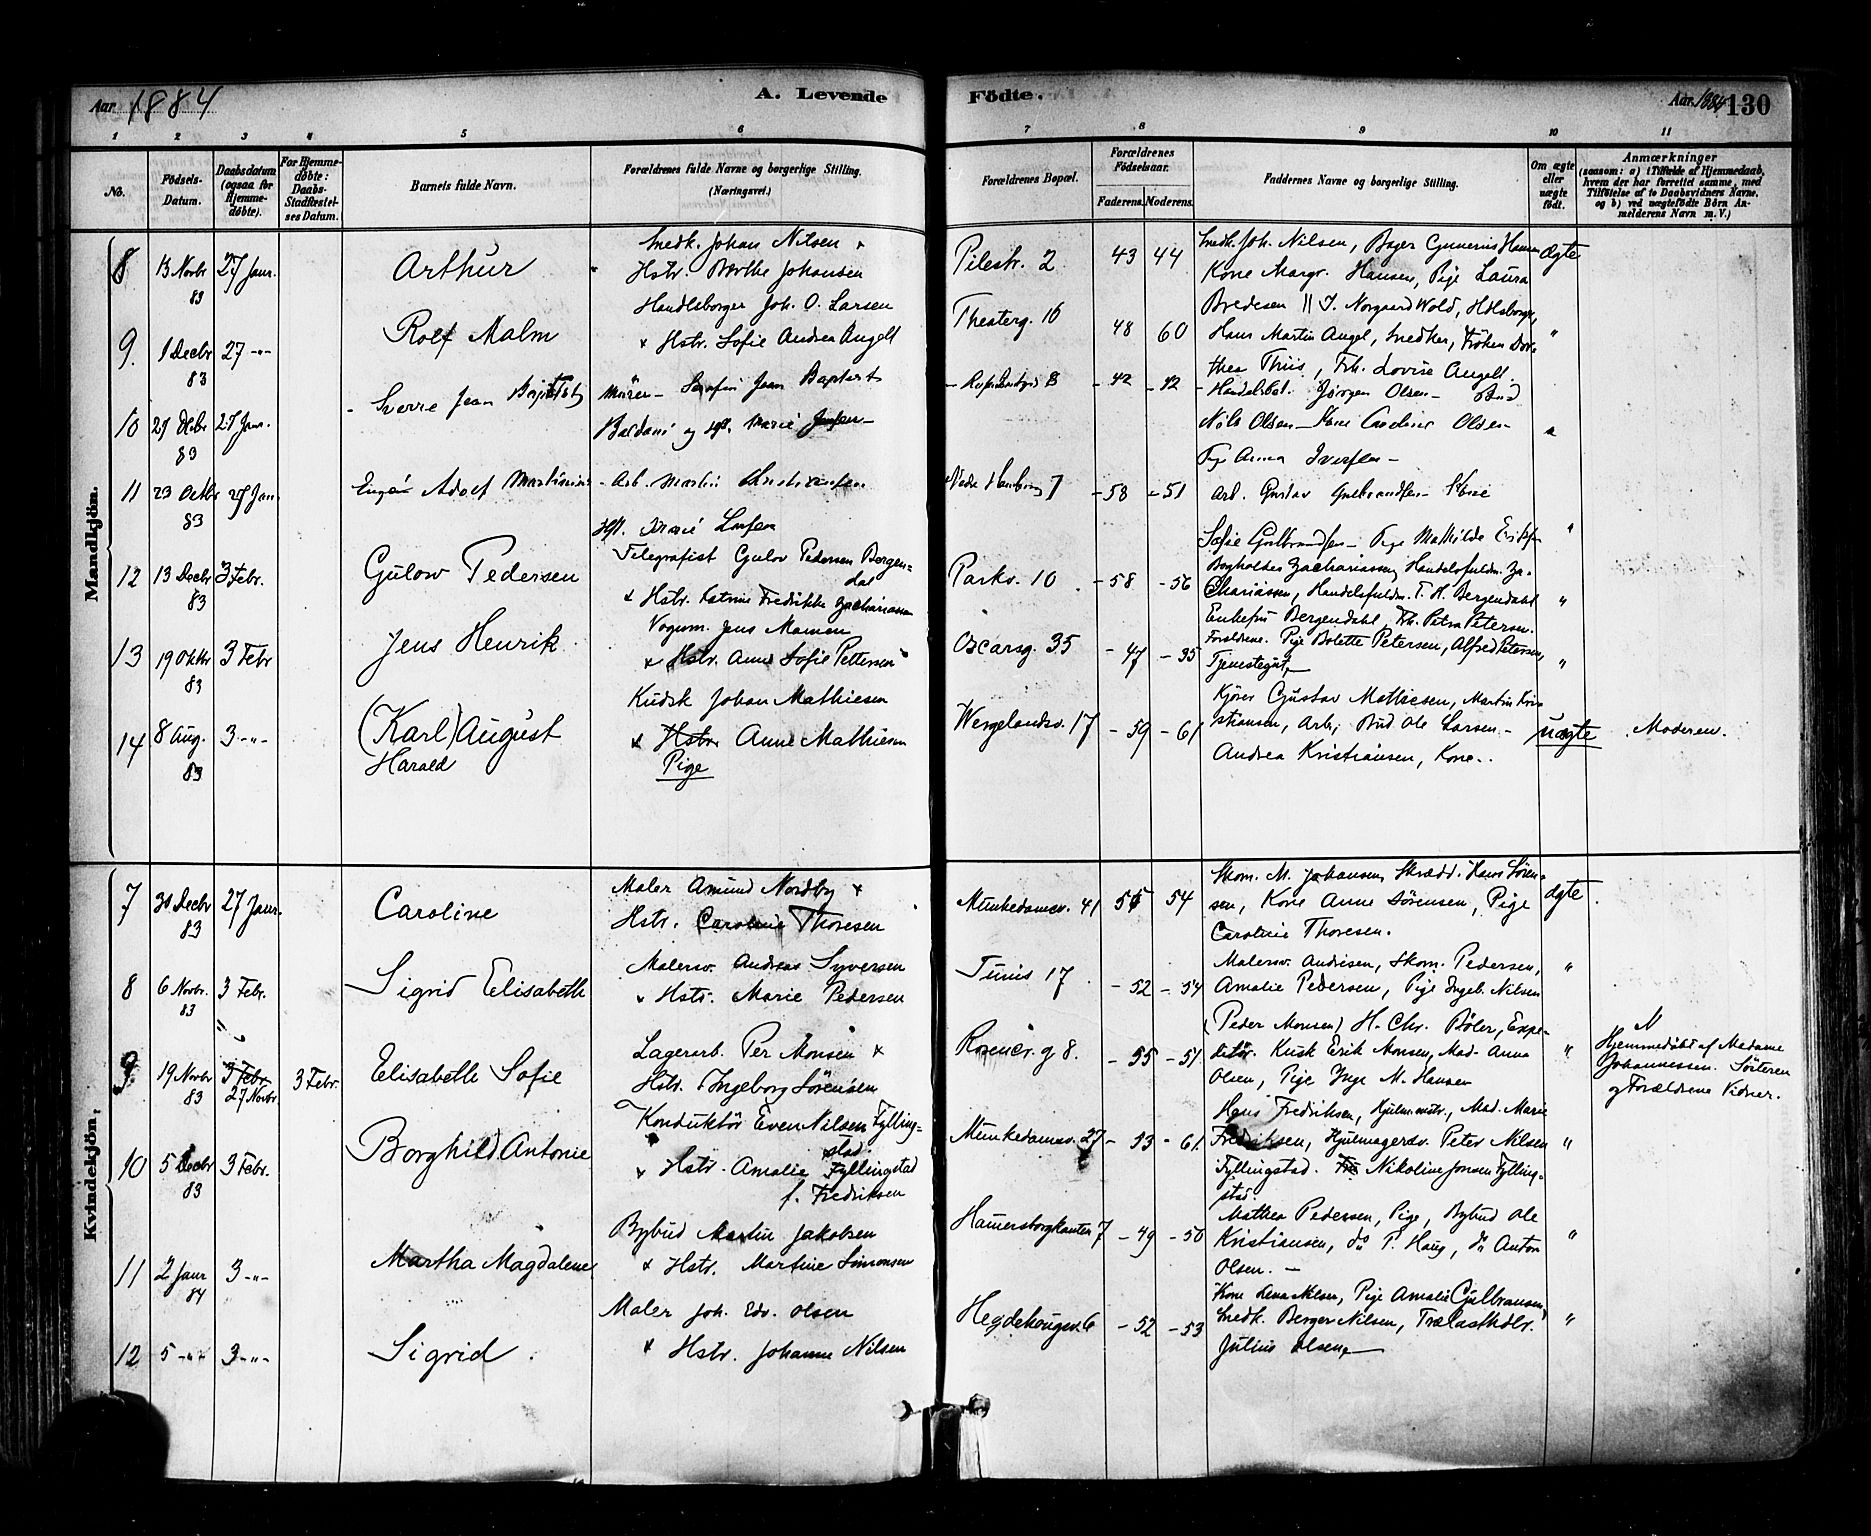 Aar 1884
A. Levende
Födte.
Aar 1884 130
1 2 3 4 5 6 7 8 9 10 11
No.
Födsels-
Datum.
Daabsdatum
(ogsaa for
Hjemme-
döbte).
For Hjemme-
döbte:
Daabs-
Stadfæstel-
ses Datum.
Barnets fulde Navn.
Forældrenes fulde Navne og borgerlige Stilling.
(Næringsvei.)
Forældrenes Bopæl.
Forældrenes
Födselsaar.
Faderens. Moderens.
Faddernes Navne og borgerlige Stilling.
Om ægte
eller
uægte
födt.
Anmærkninger
(saasom: a) i Tilfælde af Hjemmedaab,
hvem der har forrettet samme, med
Tilföielse af to Daabsvidners Navne.
og b) ved uægtefödte Börn An-
melderens Navn m. V.)
Mandkjön.
8 13 Novbr 27 Janr. Arthur
83
Snedk. Johan Nilsen
Hstr. Berthe Johansen
Pilestr. 2 43 44
Snedk. Joh. Nilsen, Bager Gunerius Hansen
Kone Margr. Hansen, Pige Laura
Bredesen
ægte
9. 1 Decbr 27 -"- Rolf Malm
83
Handlsborger Joh. O. Larsen
Hstr. Sofie Andrea Angell
Theaterg. 16 48 60
J. Norgaard Wold, Hdlsborger,
Hans Martin Angel, Snedker, Fröken Dor-
thea Thiis, Frk. Lovise Angell.
"
10 Decbr 27 Janr. Sverre Jean
83
Murer Serafin Jean Baptist
og Marie
8 - 42 - 42
Jörgen Olsen - Bud
Nils Olsen - Kone Caroline Olsen
Anna Iversen -
11 23 Octbr 27 Jan. Adolf Martinius
83
Arb. Martin Christiansen
Marie
7 - 58 - 51
Arb. Gustav Gulbrandsen - Kone
Sofie Gulbrandsen - Pige Mathilde
"
12 13 Decbr 3 Febr. Gulow Pedersen
83
Telegrafist Gulov Pedersen Bergen-
dal
Hstr. Katrine Fredrikke Zachariassen
Parkv. 10 - 58 - 56
Zachariassen, Handelsfuldm. Za-
chariassen, Handelsfuldm. T. H. Bergendahl
Enkefru Bergendahl, Frk. Petra Petersen.
"
13 19 Oktbr 3 Febr Jens Henrik
83
Vognm. Jens Mamen
Hstr. Anne Sofie Pettersen
Oscarsg. 35 - 47 - 35
Forældrene. Pige Bolette Petersen, Alfred Petersen,
Tjenestegut.
"
14 8 Aug. 3 -"- (Karl) August
83 Harald
Kudsk Johan Mathiesen
Hstr. Anne Mathiesen
Pige
Wergelandsv. 17 - 59 - 61
Kjörer Gustav Mathiesen, Martin Kri-
stiansen, Arb., Bud Ole Larsen. -
Andrea Kristiansen, Kone.
uægte Moderen.
Kvindekjön.
7 30 Decbr 27 Janr. Caroline
83
Maler Amund Nordby
Hstr. Caroline Thoresen
Munkedamsv. 41 54
Skom. M. Johansen, Skrædd. Hans Sören-
sen, Kone Anne Sörensen, Pige
Caroline Thoresen.
ægte
8 6 Novbr. 3 Febr. Sigrid Elisabeth
83
Malersv. Andreas Syversen
Hstr. Marie Pedersen
Tunis 17 - 52 - 54
Malersv. Andresen, Skom. Pedersen,
Amalie Pedersen, Pige Ingeb. Nilsen
"
9 19 Novbr 3 Febr 3 Febr. Elisabeth Sofie
83 27 Novbr
Lagerarb. Per Monsen
Hstr. Ingeborg Sörensen
8. - 55 - 51
(Peder Monsen) H. Chr. Böler, Expe-
ditör. Kusk Erik Monsen, Mad. Anna
Olsen, Pige Inge M. Hansen
"
Hjemmedöbt af Madame
Johannessen. Sösteren
og Forældrene Vidner.
10 5 Decbr 3 Febr. Borghild Antonie
83
Konduktör Even Nilsen Fylling-
stad.
Hstr. Amalie Fyllingstad
f. Fredriksen
Munkedamsv. 27 - 53 - 61
Hans Fredriksen, Hjulmstr., Mad. Marie
Fredriksen, Hjulmagersv. Peter Nilsen
Fyllingstad. Nikoline Jonsen Fylling-
stad.
"
11 2 Janr 3 -"- Martha Magdalene
84
Bybud Martin Jakobsen
Hstr. Martine Simonsen
Hamersborgkanten 7 - 49 - 50
Mathea Pedersen, Pige, Bybud Ole
Kristiansen, do P. Haug, do Anton
Olsen. -
"
12 5 -"- 3 -"- Sigrid.
Maler Joh. Edv. Olsen
Hstr. Johanne Nilsen
Hegdehougsv. 6 - 52 - 53
Kone Lena Nilsen, Pige Amalie Gulbransen,
Snedk. Berger Nilsen, Trælasthdlr.
Julius Olsen.
"